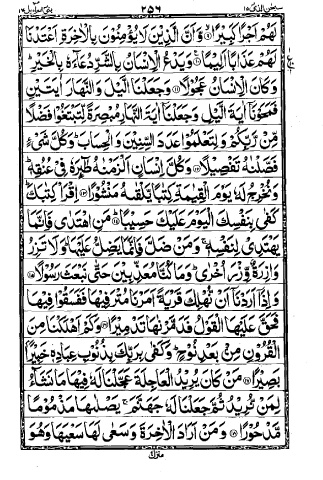 سبحن الذی ۱۵ ۲۵۶ بنی اسرآءیل ۱۷
لَهُمْ اَجْرًا كَبِیْرًا ۙ وَّ اَنَّ الَّذِیْنَ لَا یُؤْمِنُوْنَ بِالْاٰخِرَةِ اَعْتَدْنَا
لَهُمْ عَذَابًا اَلِیْمًا ۠ وَ یَدْعُ الْاِنْسَانُ بِالشَّرِّ دُعَآءَهٗ بِالْخَیْرِ ؕ
وَ كَانَ الْاِنْسَانُ عَجُوْلًا ۝ وَ جَعَلْنَا الَّیْلَ وَ النَّهَارَ اٰیَتَیْنِ
فَمَحَوْنَاۤ اٰیَةَ الَّیْلِ وَ جَعَلْنَاۤ اٰیَةَ النَّهَارِ مُبْصِرَةً لِّتَبْتَغُوْا فَضْلًا
مِّنْ رَّبِّكُمْ وَ لِتَعْلَمُوْا عَدَدَ السِّنِیْنَ وَ الْحِسَابَ ؕ وَ كُلَّ شَیْءٍ
فَصَّلْنٰهُ تَفْصِیْلًا ۝ وَ كُلَّ اِنْسَانٍ اَلْزَمْنٰهُ طٰٓىِٕرَهٗ فِیْ عُنُقِهٖ ؕ
وَ نُخْرِجُ لَهٗ یَوْمَ الْقِیٰمَةِ كِتٰبًا یَّلْقٰىهُ مَنْشُوْرًا ۝ اِقْرَاْ كِتٰبَكَ ؕ
كَفٰی بِنَفْسِكَ الْیَوْمَ عَلَیْكَ حَسِیْبًا ؕ۝ مَنِ اهْتَدٰی فَاِنَّمَا
یَهْتَدِیْ لِنَفْسِهٖ ۚ وَ مَنْ ضَلَّ فَاِنَّمَا یَضِلُّ عَلَیْهَا ؕ وَ لَا تَزِرُ
وَازِرَةٌ وِّزْرَ اُخْرٰی ؕ وَ مَا كُنَّا مُعَذِّبِیْنَ حَتّٰی نَبْعَثَ رَسُوْلًا ۝
وَ اِذَاۤ اَرَدْنَاۤ اَنْ نُّهْلِكَ قَرْیَةً اَمَرْنَا مُتْرَفِیْهَا فَفَسَقُوْا فِیْهَا
فَحَقَّ عَلَیْهَا الْقَوْلُ فَدَمَّرْنٰهَا تَدْمِیْرًا ۝ وَ كَمْ اَهْلَكْنَا مِنَ
الْقُرُوْنِ مِنْۢ بَعْدِ نُوْحٍ ؕ وَ كَفٰی بِرَبِّكَ بِذُنُوْبِ عِبَادِهٖ خَبِیْرًۢا
بَصِیْرًا ۝ مَنْ كَانَ یُرِیْدُ الْعَاجِلَةَ عَجَّلْنَا لَهٗ فِیْهَا مَا نَشَآءُ
لِمَنْ نُّرِیْدُ ثُمَّ جَعَلْنَا لَهٗ جَهَنَّمَ ۚ یَصْلٰىهَا مَذْمُوْمًا
مَّدْحُوْرًا ۝ وَ مَنْ اَرَادَ الْاٰخِرَةَ وَ سَعٰی لَهَا سَعْیَهَا وَ هُوَ
منزل